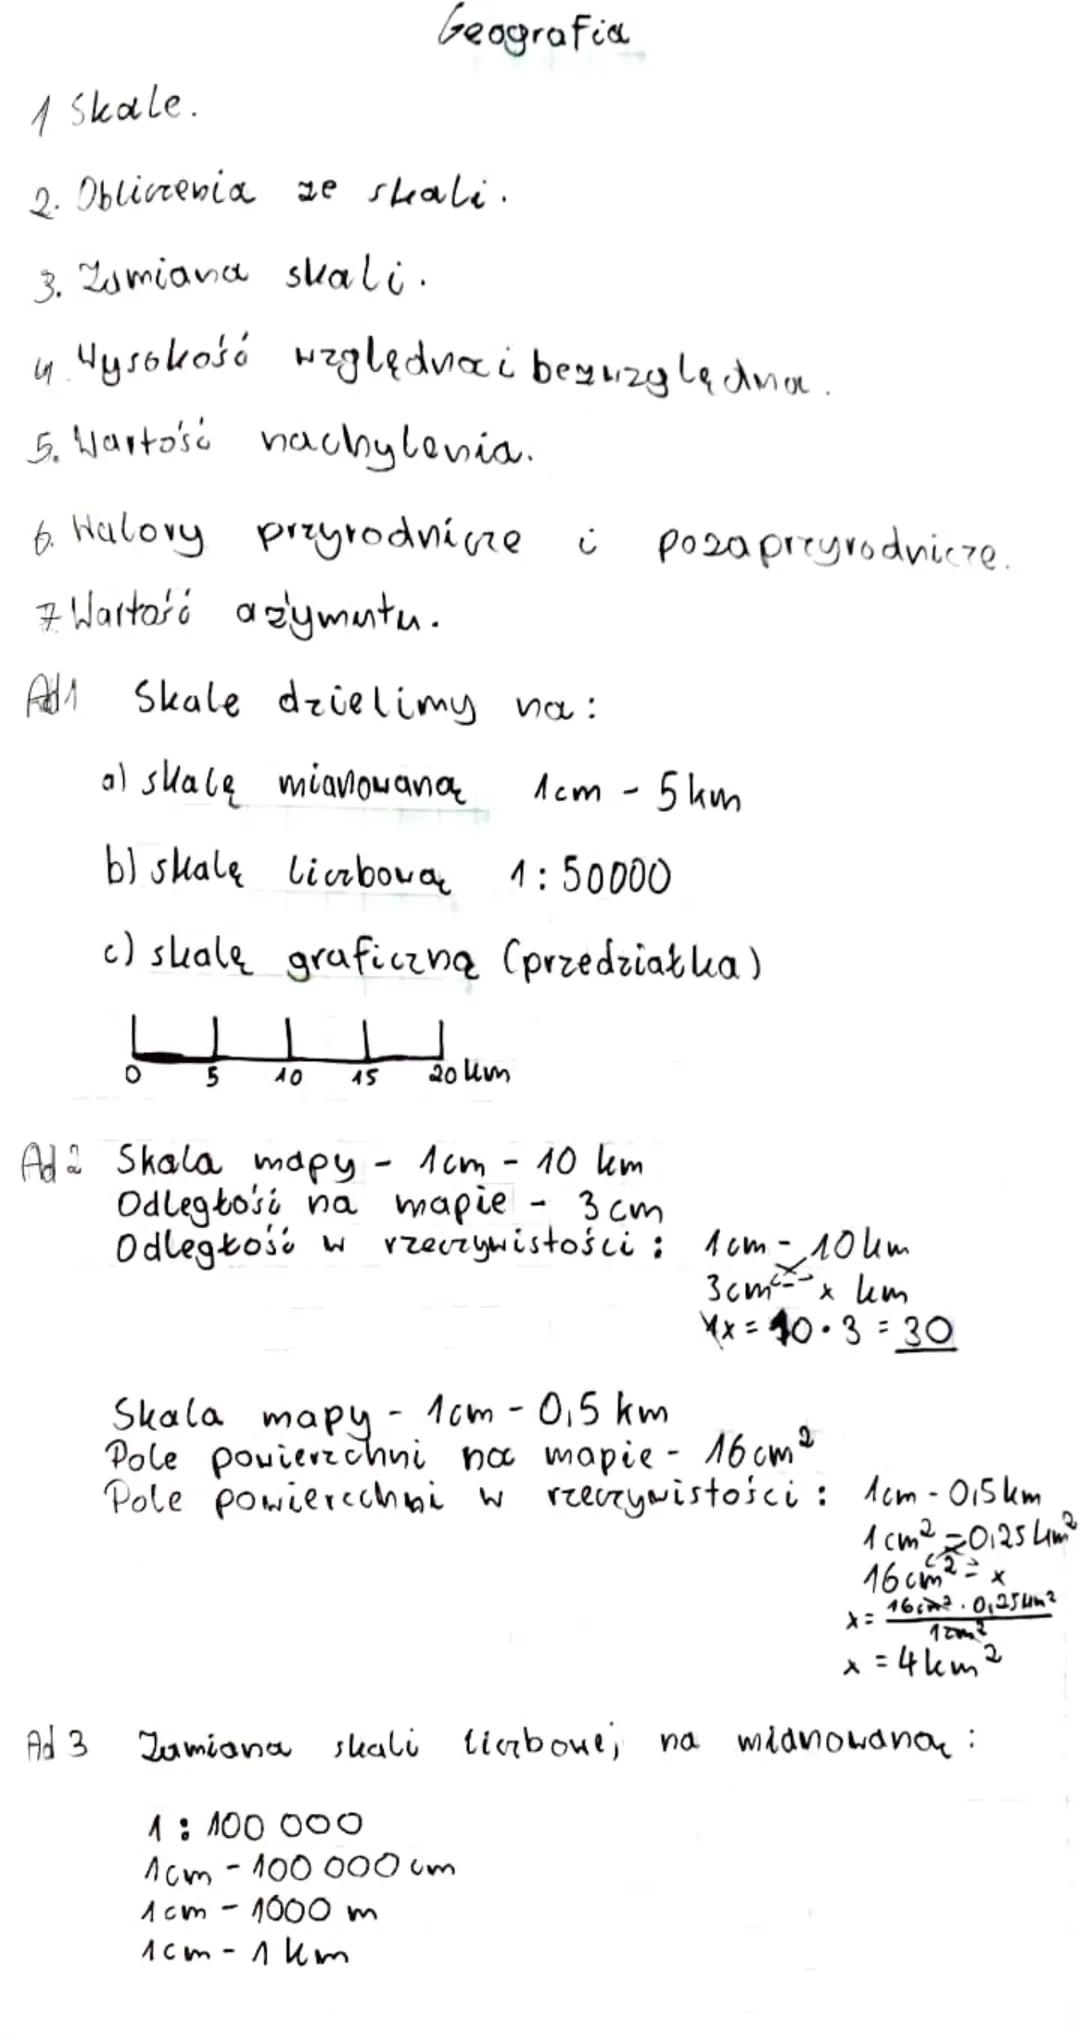 Geografia
1 Skale.
2. Obliczenia ze skali.
3. Zamiana skali.
4. Wysokość względna i bezwzględna.
5. Wartość nachylenia.
6. Walory przyrodnicze i pozaprzyrodnicze.
7. Wartość azymutu.
Ad1 Skale dzielimy na:
a) skalę mianowaną 1cm - 5 km
b) skalę liczbową 1 : 50000
c) skalę graficzną (przedziałka)
0 5 10 15 20 km
Ad 2 Skala mapy - 1cm - 10 km
Odległość na mapie - 3 cm
Odległość w rzeczywistości : 1cm - 10 km
3cm - x km
1x = 10 · 3 = 30
Skala mapy - 1cm - 0,5 km
Pole powierzchni na mapie - 16 cm²
Pole powierzchni w rzeczywistości : 1cm - 0,5 km
1 cm² - 0,25 km²
16 cm² - x
x = 16cm² · 0,25km²
1cm²
x = 4 km²
Ad 3 Zamiana skali liczbowej na mianowaną :
1 : 100 000
1cm - 100 000 cm
1 cm - 1000 m
1cm - 1 km